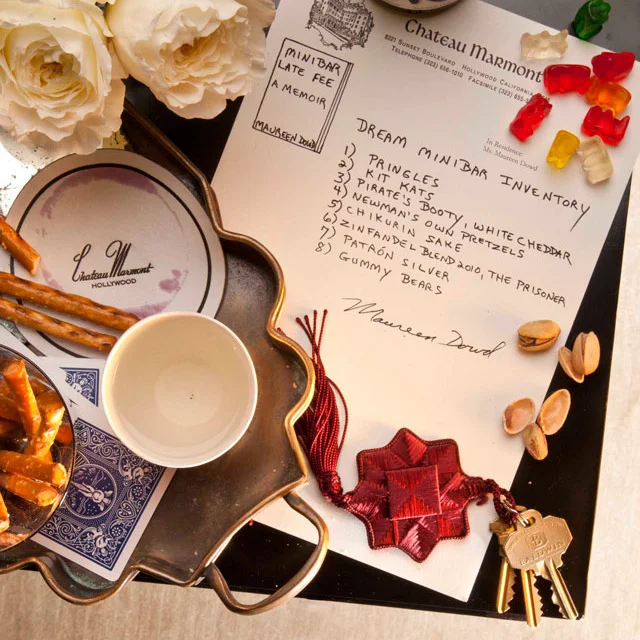 Chateau Marmont
8221 Sunset Boulevard Hollywood California
Telephone (323) 656-1010 Facsimile (323) 655-
In Residence:
Ms. Maureen Dowd
MINIBAR
LATE FEE
A MEMOIR
MAUREEN DOWD
DREAM MINIBAR INVENTORY
1) PRINGLES
2) KIT KATS
3) PIRATE'S BOOTY, WHITE CHEDDAR
4) NEWMAN'S OWN PRETZELS
5) CHIKURIN SAKE
6) ZINFANDEL BLEND 2010, THE PRISONER
7) PATRÓN SILVER
8) GUMMY BEARS
Maureen Dowd
Chateau Marmont
HOLLYWOOD
BALDWIN